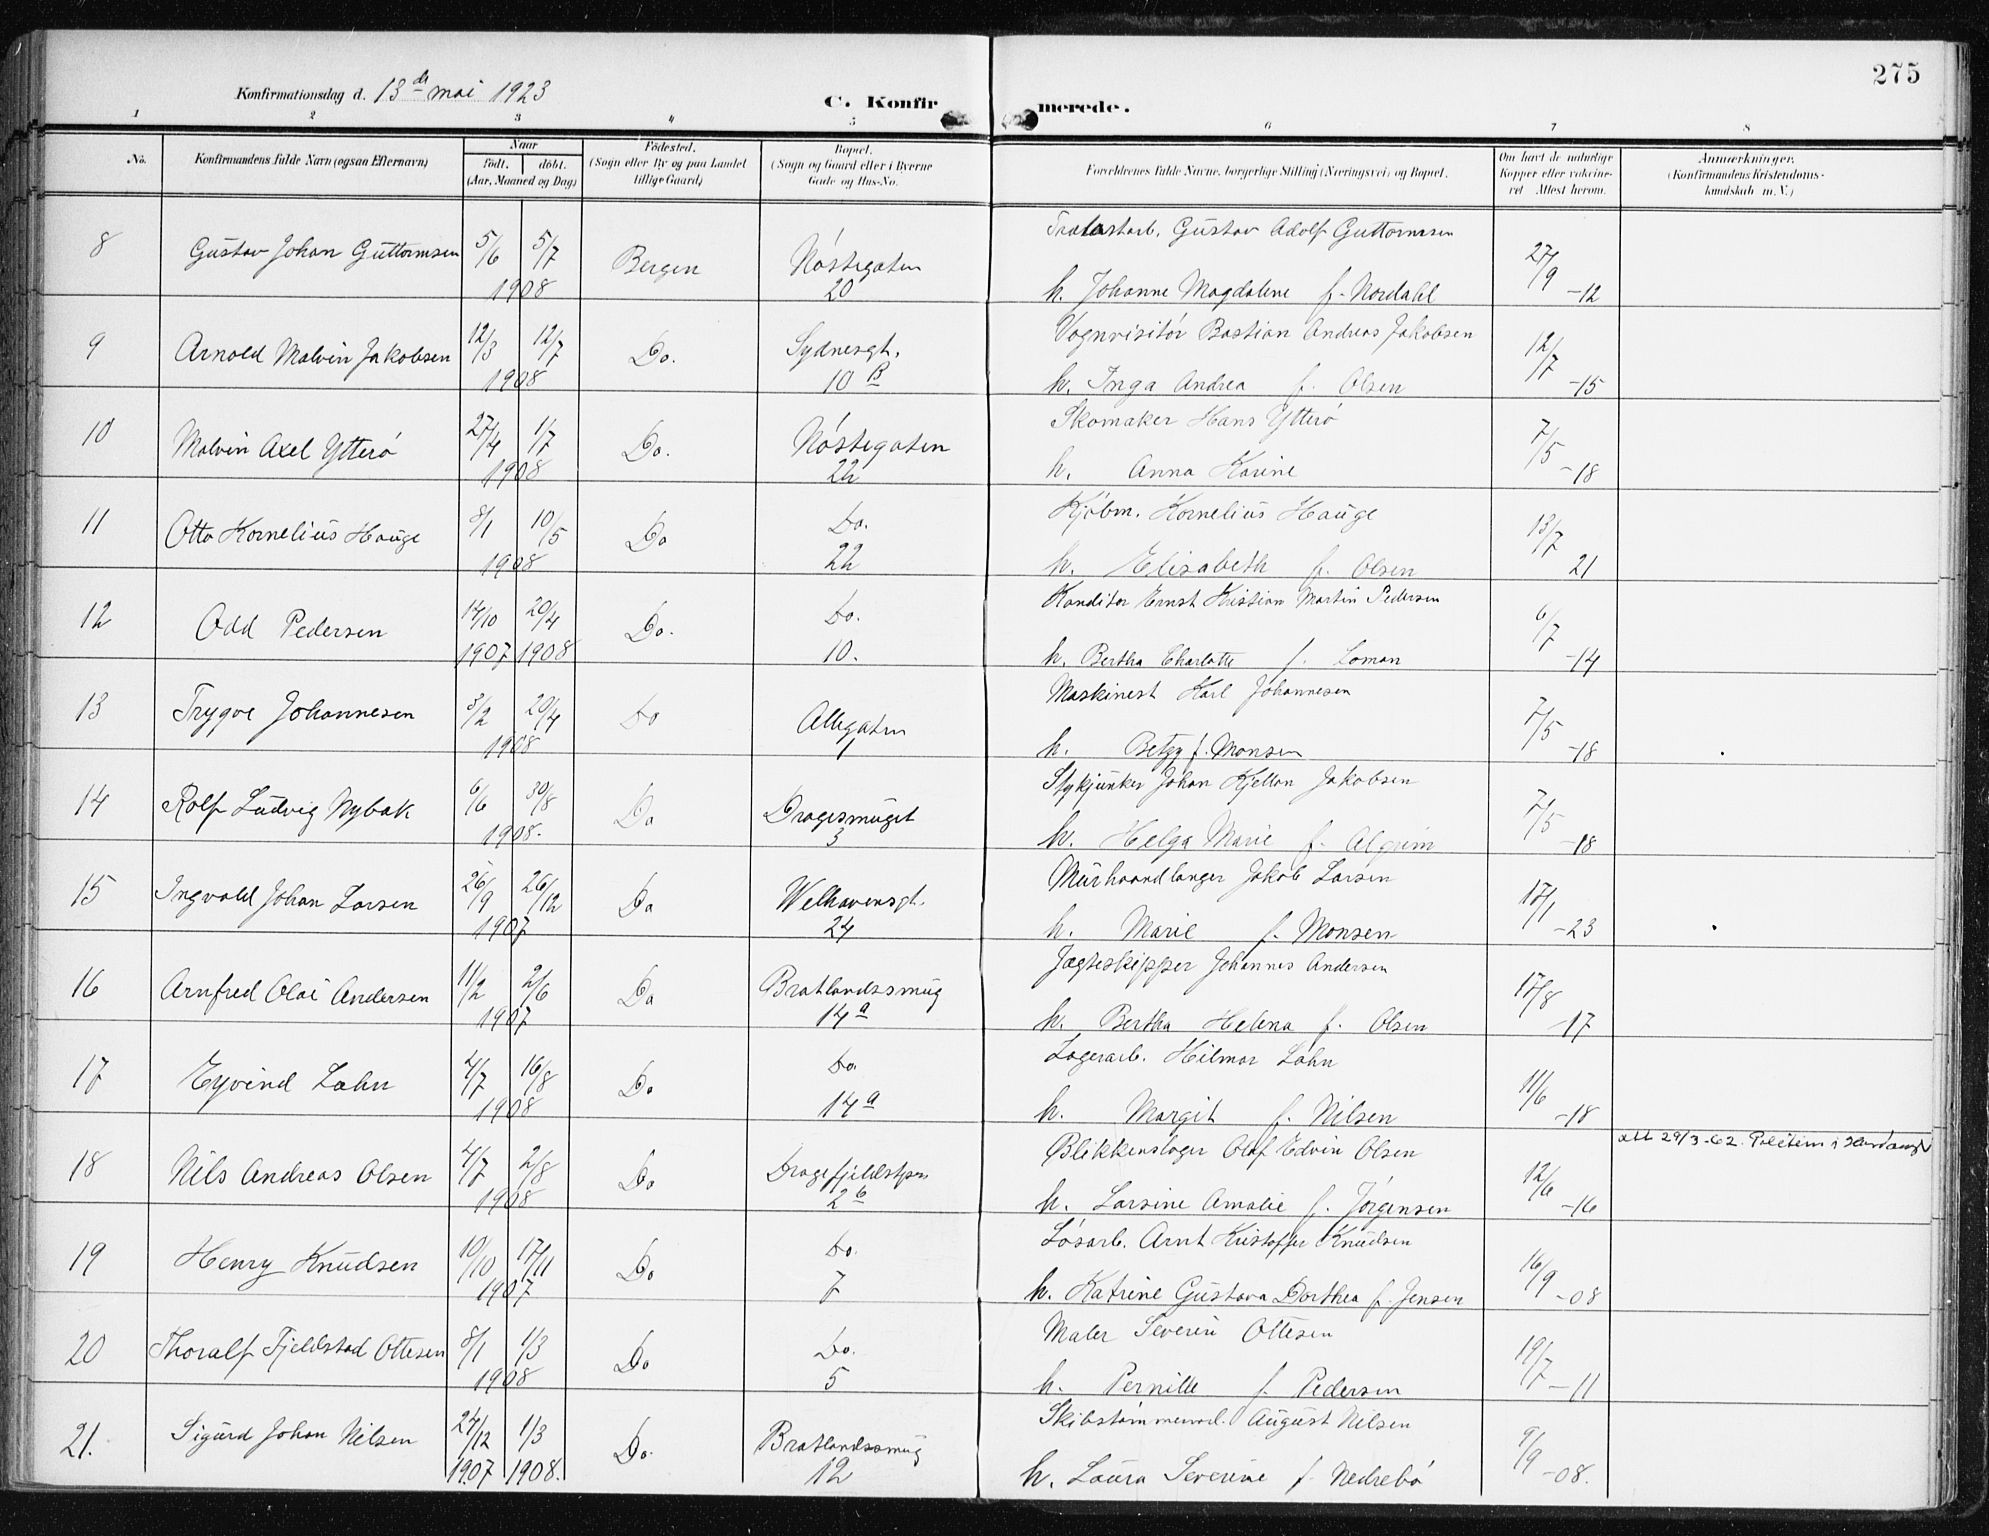 275
Konfirmationsdag d. 13de mai 1923
C. Konfir merede.
1 2 3 4 5 6 7 8
No. Konfirmandens fulde Navn (ogsaa Efternavn) Naar født. døbt. (Aar, Maaned og Dag) Fødested. (Sogn eller By og paa Landet tillige Gaard) Bopæl. (Sogn og Gaard eller i Byerne Gade og Hus-No. Forældrenes fulde Navne, borgerlige Stilling (Næringsvei) og Bopæl. Om havt de naturlige Kopper eller vakcineret Attest herom. Anmærkninger. (Konfirmandens Kristendomskundskab m. V.)
8 Gustav Johan Guttormsen 5/6 5/7 1908 Bergen Nöstegaten 20 Gustav Adolf Guttormsen
h. Johanne Magdalene f. Nordahl 27/9 -12
9 Arnold Malvin Jakobsen 12/3 12/7 1908 Do. Sydnesgt. 10 B Vognvisitör Bastian Andreas Jakobsen
h. Inga Andrea f. Olsen 12/7 -15
10 Malvin Axel Ytterö 27/4 1/7 1908 Do. Nöstegaten 22 Skomaker Hans Ytterö
h. Anna Karine 7/5 -18
11 Otto Kornelius Hauge 8/1 10/5 1908 Do Do. 22 Kjöbm. Kornelius Hauge
h. Elisabeth f. Olsen 13/7 21
12 Odd Pedersen 14/10 20/4 1907 1908 Do. Do. 10. Konditor Ernst Kristian Martin Pedersen
h. Bertha Charlotte f. Loman 6/7 -14
13 Trygve Johannesen 3/2 20/4 1908 Do Allegaten 1 Maskinest Karl Johannesen
h. Betzy f. Monsen 7/5 -18
14 Rolf Ludvig Nybak 6/6 30/8 1908. Do Dragesmuget 3 Stykjunker Johan Kjellan Jakobsen
h. Helga Marie f. Algrim 7/5 -18
15 Ingvald Johan Larsen 26/9 26/12 1907 Do Welhavensgt. 24 Murhaandlanger Jakob Larsen
h. Marie f. Monsen 17/1 -23
16 Arnfred Olai Andersen 11/2 2/6 1907 Do Bratlandssmug 14a Jagteskipper Johannes Andersen
h. Bertha Helena f. Olsen 17/8 -17
17 Eyvind Lahn 4/7 16/8 1908 Do Do. 14a Lagerarb. Hilmar Lahn
h. Margit f. Nilsen 11/6 -18
18 Nils Andreas Olsen 4/7 2/8 1908 Do 2b Blikkenslager Olaf Edvin Olsen att 29/3-62. Politiet i
h. Larsine Amalie f. Jörgensen 12/6 -16
19 Henry Knudsen 10/10 17/11 1907 Do Do. 7 Løsarb. Arnt Kristoffer Knudsen
h. Katrine Gustava Dorthea f. Jensen 16/9 -08
20 Thoralf Fjeldstad Ottesen 8/1 1/3 1908 Do Do. 5 Maler Severin Ottesen
h. Pernille f. Pedersen 19/7 -11
21. Sigurd Johan Nilsen 24/12 1/3 1907 1908. Do. Bratlandssmug 12 August Nilsen
h. Laura Severine f. Nedrebö 9/9 -08.